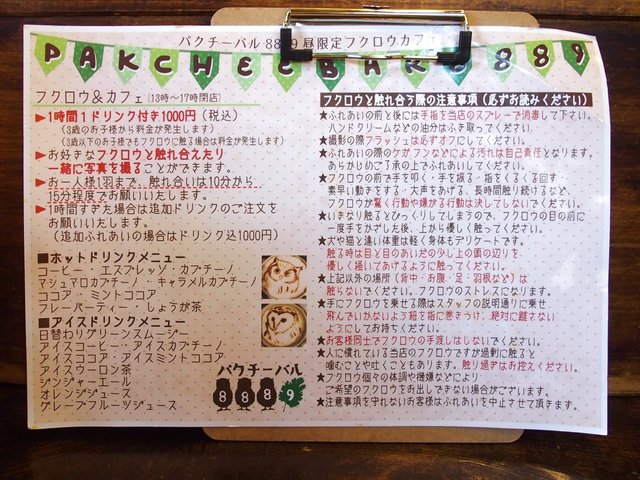 パクチーバル 8889 昼限定フクロウカフェ
PAKCHEEBAR 8889
フクロウ&カフェ(13時〜17時閉店)
▶1時間1ドリンク付き1000円(税込)
(3歳のお子様から料金が発生します)
(3歳以下のお子様でもフクロウに触る場合は料金が発生します)
▶お好きなフクロウと触れ合えたり
一緒に写真を撮ることができます。
▶お一人様1羽まで、触れ合いは10分から
15分程度でお願いいたします。
▶1時間すぎた場合は追加ドリンクのご注文を
お願いいたします。
(追加ふれあいの場合はドリンク込1000円)
■ホットドリンクメニュー
コーヒー・エスプレッソ・カプチーノ
マシュマロカプチーノ・キャラメルカプチーノ
ココア・ミントココア
フレーバーティー・しょうが茶
■アイスドリンクメニュー
日替わりグリーンスムージー
アイスコーヒー・アイスカプチーノ
アイスココア・アイスミントココア
アイスウーロン茶
ジンジャーエール
オレンジジュース
グレープフルーツジュース
パクチーバル
8 8 8 9
フクロウと触れ合う際の注意事項(必ずお読みください)
★ふれあいの前と後には手指を当店のスプレーで消毒して下さい。
ハンドクリームなどの油分はふき取ってください。
★撮影の際フラッシュは必ずオフにしてください。
★ふれあいの際のケガ フンなどによる汚れは自己責任となります。
あらかじめご了承の上でふれあいしてください。
★フクロウの前で手を叩く・手を振る・指をくるくる回す・
素早い動きをする・大声をあげる、長時間触り続けるなど、
フクロウが驚く行動や嫌がる行動は決してしないでください。
★いきなり触るとびっくりしてしまうので、フクロウの目の前に
一度手をかざした後、上から優しく触ってください。
★犬や猫と違い体重は軽く身体もデリケートです。
触る時は目と目のあいだの少し上の頭の辺りを
優しく掻いてあげるように触ってください。
★上記以外の場所(背中・お腹・足・羽根など)は
触らないでください。フクロウのストレスになります。
★手にフクロウを乗せる際はスタッフの説明通りに乗せ
飛んでいかないよう紐を指に巻きつけ、絶対に離さない
ようにしてお持ちください。
★お客様同士でフクロウの手渡しはしないでください。
★人に慣れている当店のフクロウですが過剰に触ると
噛むことや吐くこともあります。触り過ぎはお控えください。
★フクロウ個々の体調や機嫌などにより
ご希望のフクロウをお出しできない場合がございます。
★注意事項を守れないお客様はふれあいを中止させて頂きます。